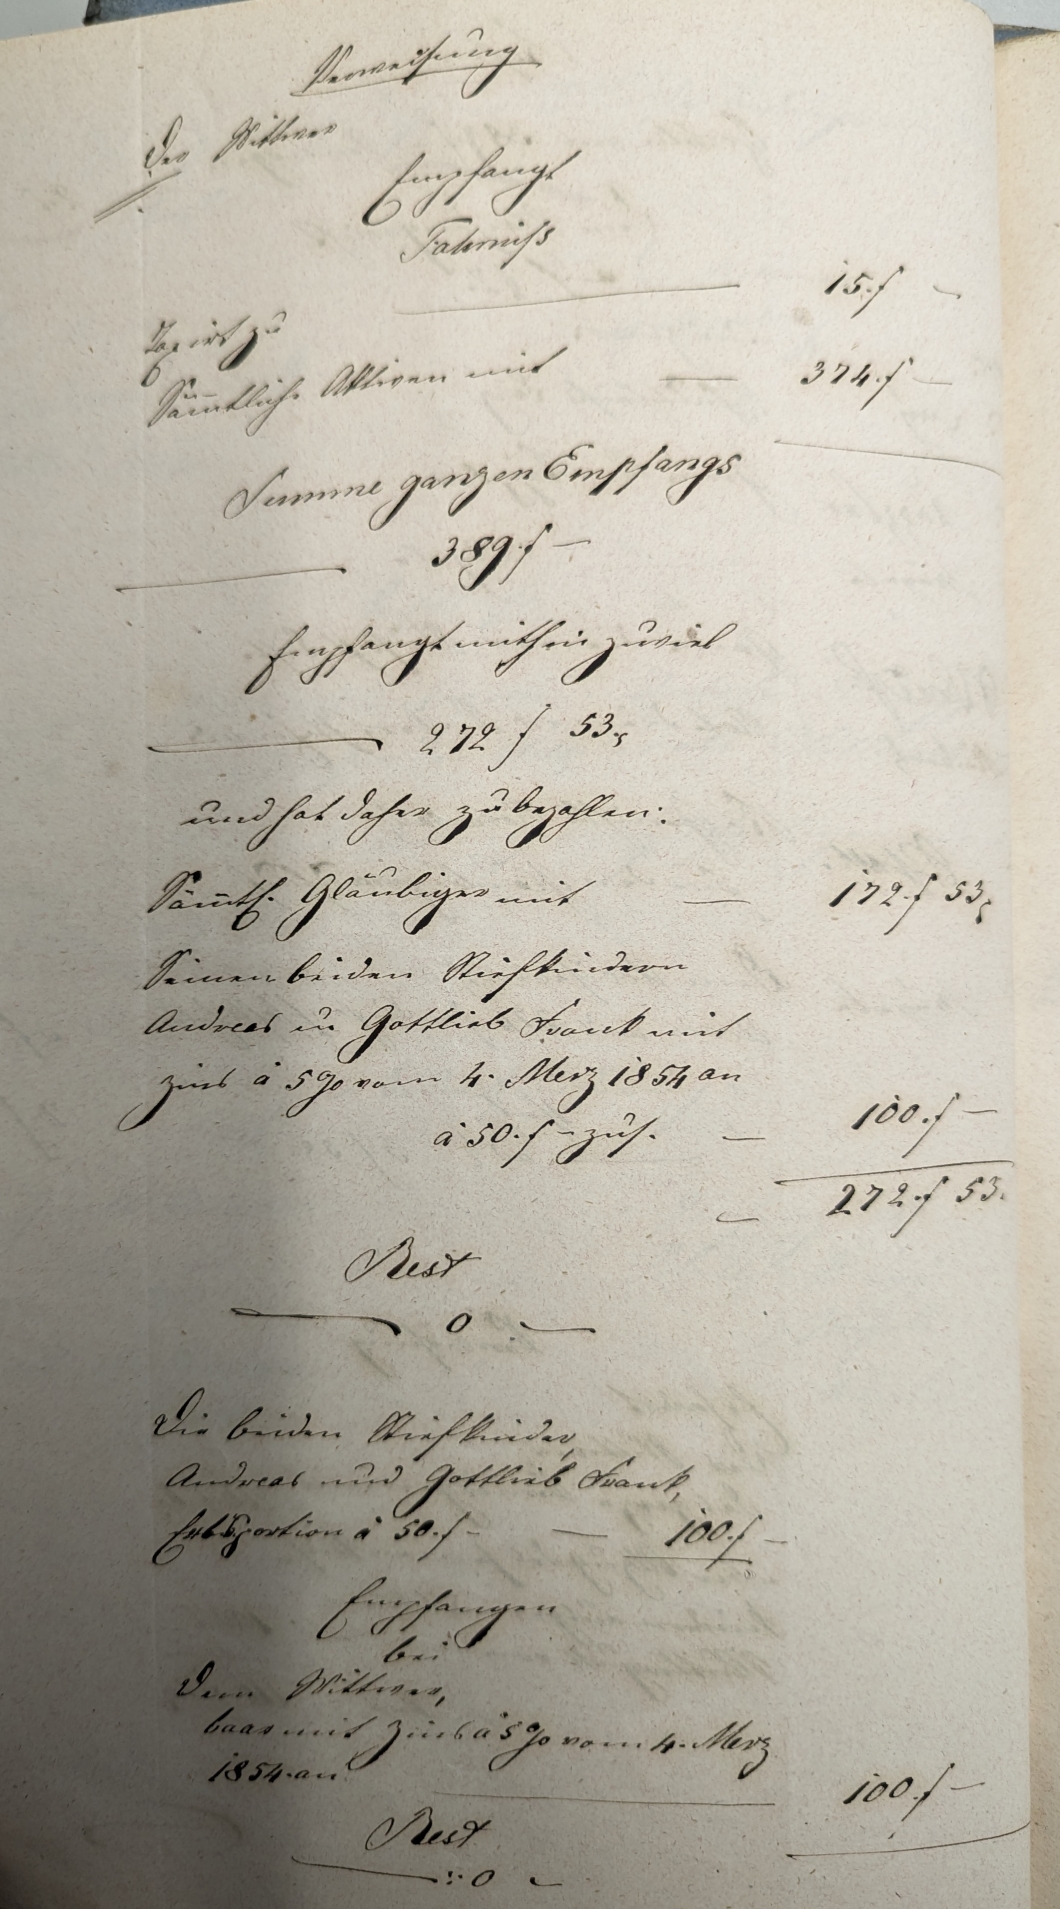 Verweisung
Der Wittwer
Empfangt
Fahrniss
15.f –
Taxirt zu
Sämmtliche Aktiven mit — 374.f –
Summe ganzen Empfangs
389.f –
Empfangt mithin zuviel
272 f 53
und hat daher zu bezahlen:
Sämtl. Gläubiger mit — 172.f 53
Seinen beiden Stiefkindern
Andreas u Gottlieb Frank mit
Zins à 5% vom 4. Merz 1854 an
à 50.f – zus. — 100.f –
272.f 53.
Rest
0
Die beiden Stiefkinder,
Andreas und Gottlieb Frank,
Erbsportion à 50.f – — 100.f –
Empfangen
bei
Dem Wittwer,
baar mit Zins à 5% vom 4. Merz
1854. an
100.f –
Rest
0